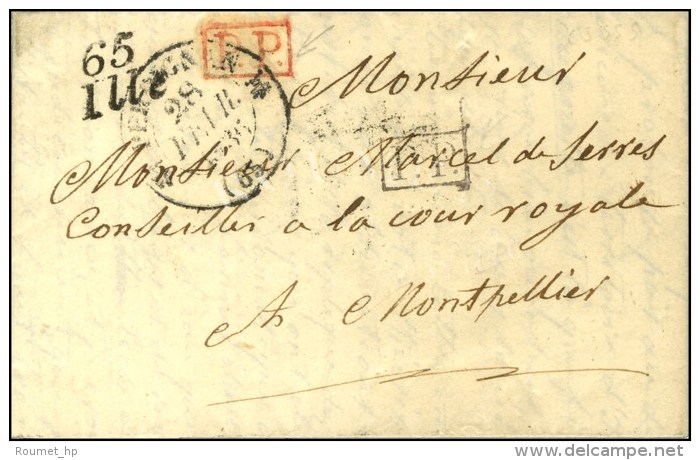 65
Ille
P.P.
PERPIGNAN
28
FEVR.
(65)
P.P.
Monsieur
Monsieur Marcel de Serres
Conseiller a la cour royale
A Montpellier
Roumet_hp
www.delcampe.net